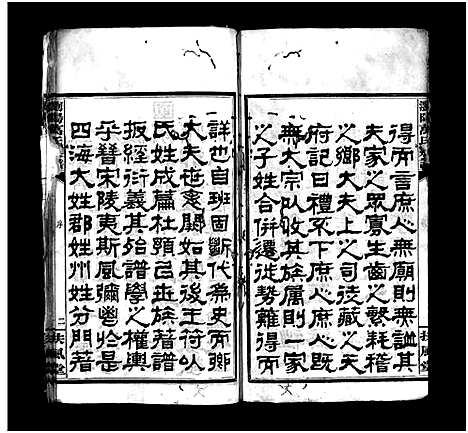 得而言庶人無廟則無譜其
夫家之眾寡生齒之繁耗稽
之鄉大夫上之司徒藏之天
府記曰禮不下庶人庶人既
無大宗以收其族屬則一家
之子姓合併遷徙勢難得而
詳也自班固斷代為史而卿
大夫世系闕如其後王符以
氏姓成篇杜預吕世族著譜
扳經衍義其殆譜學之權輿
乎晉宋陵夷斯風彌邕於是
四海大姓郡姓州姓分門著
瀏陽萬氏
扶風堂
序
二
扶風堂